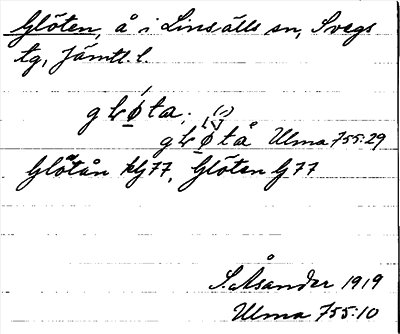 Glöten, å i Linsälls sn, Svegs
tg, Jämtl. l.
gLøta.
gLøtå Ulma 755:29
Glötån kG77, Glöten G77
S. Åsander 1919
Ulma 755:10